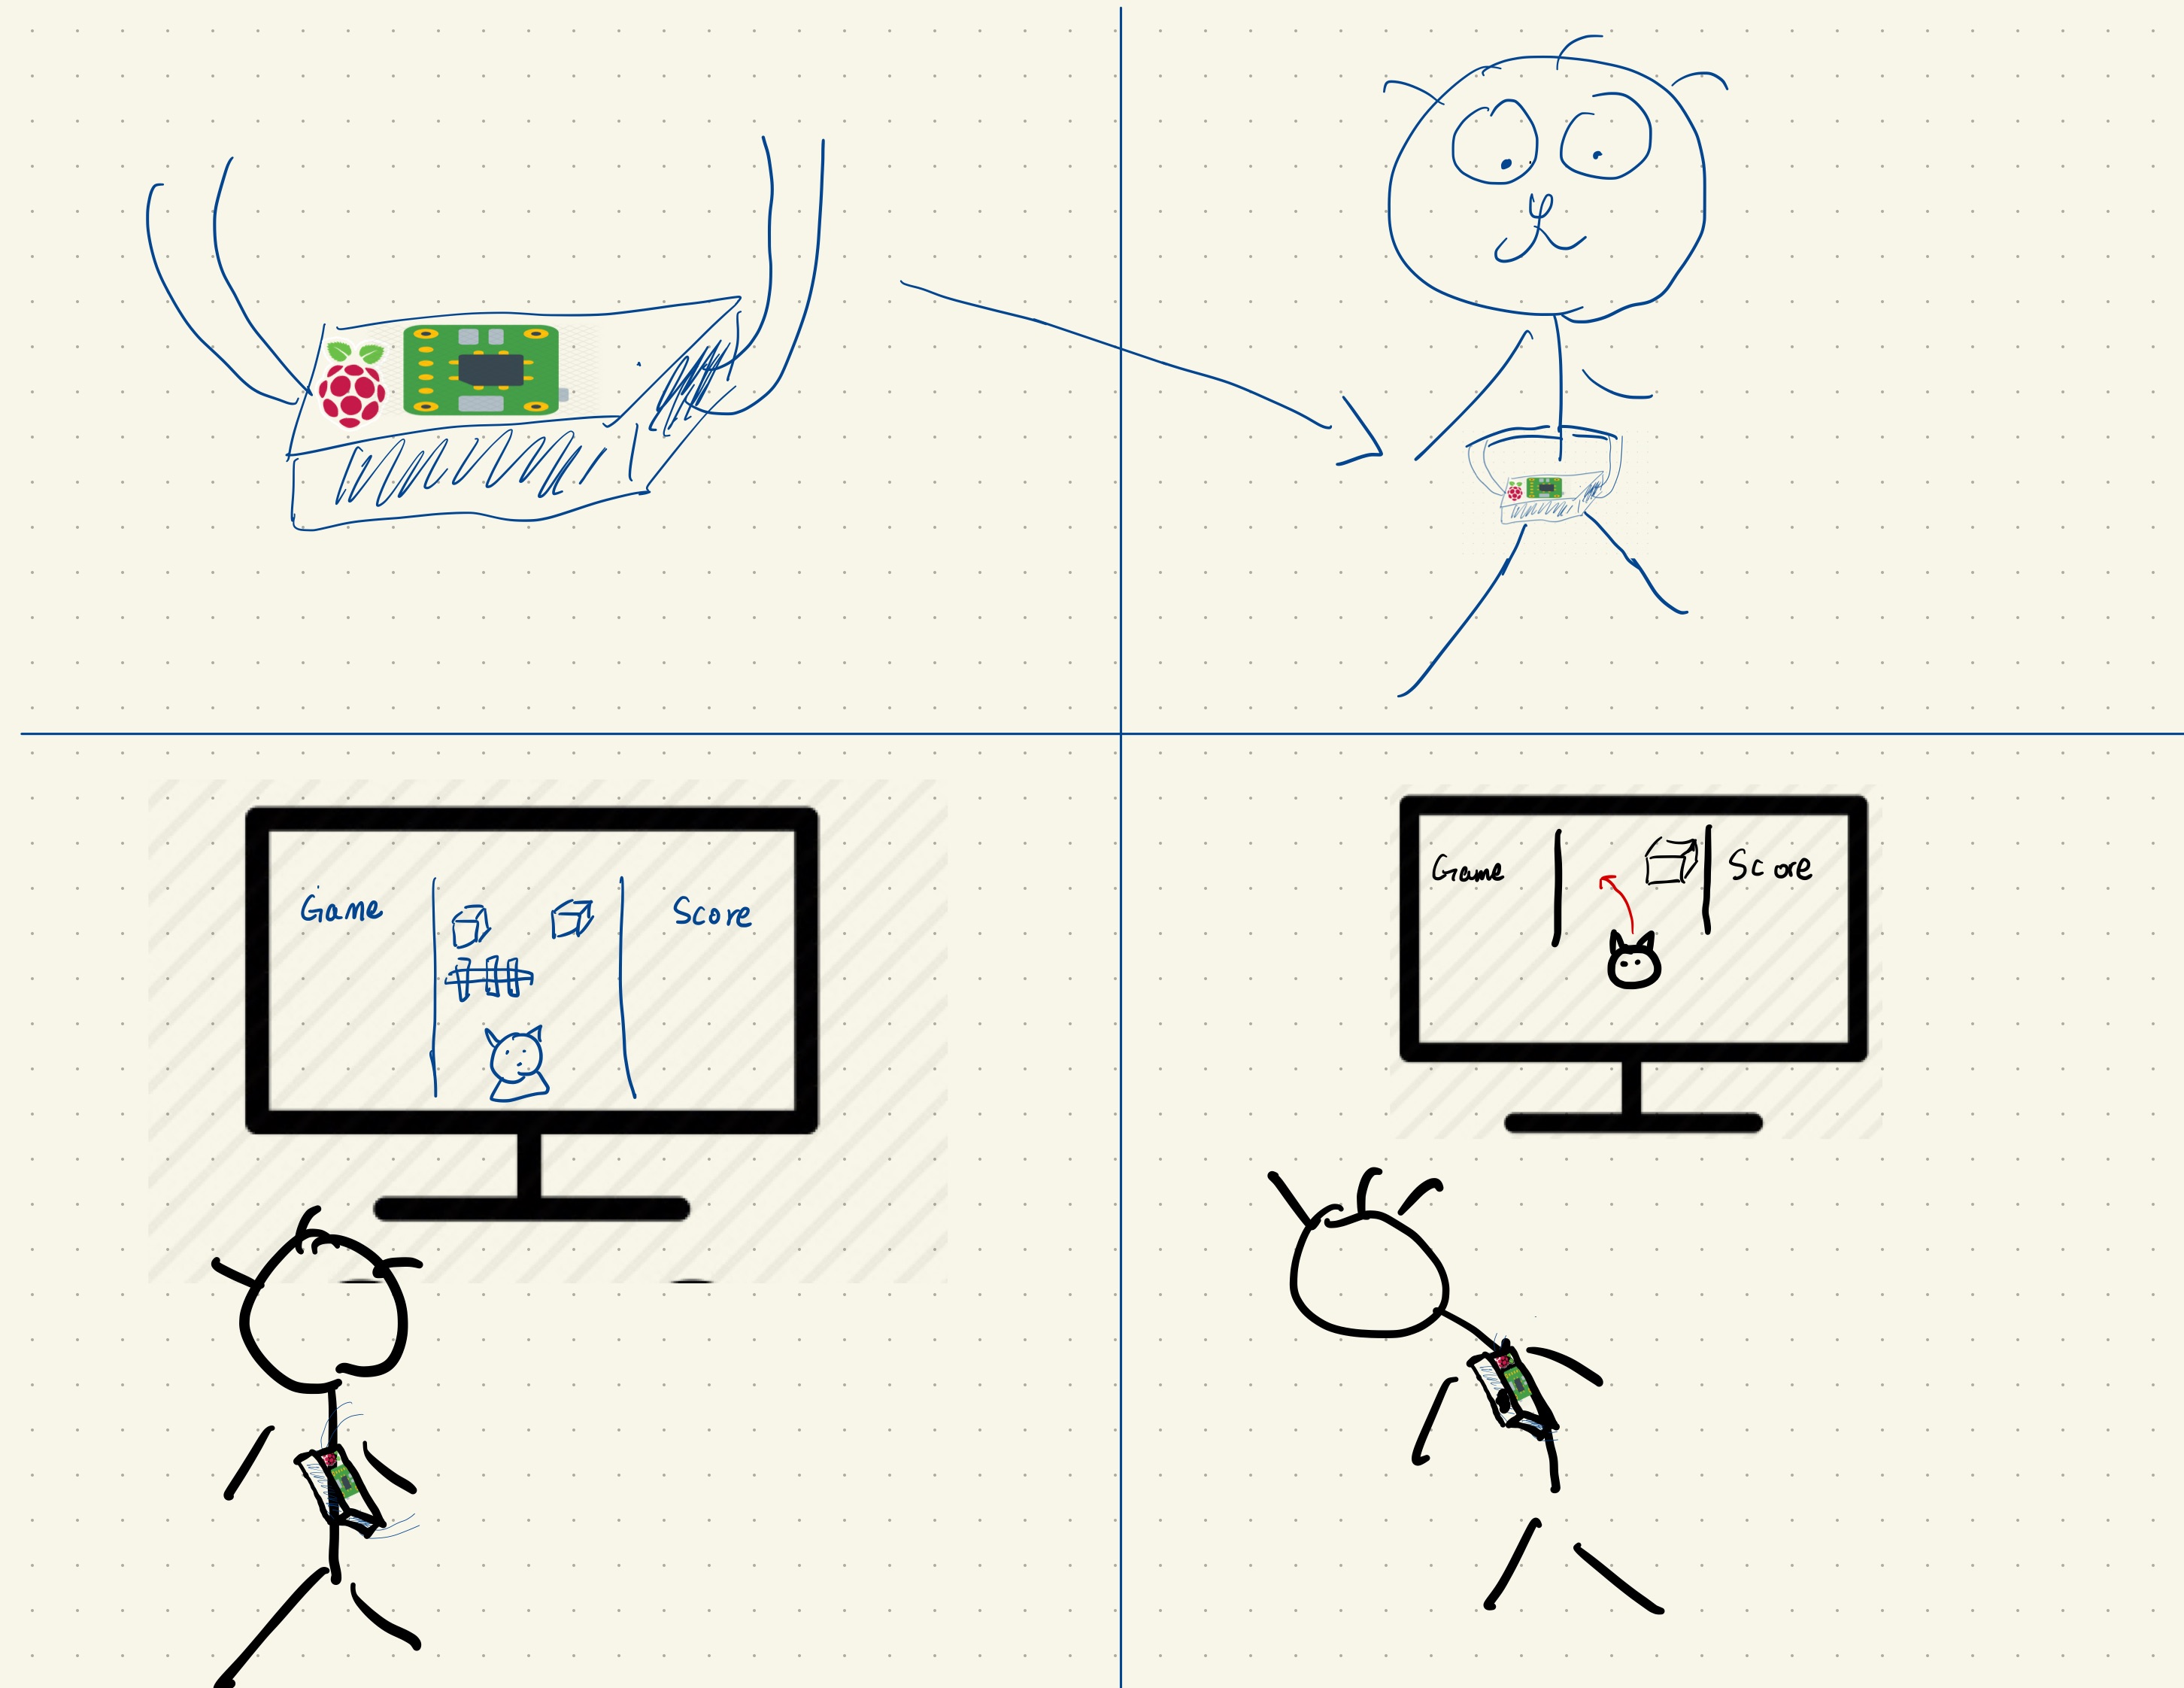 Game
Score
Game
Score